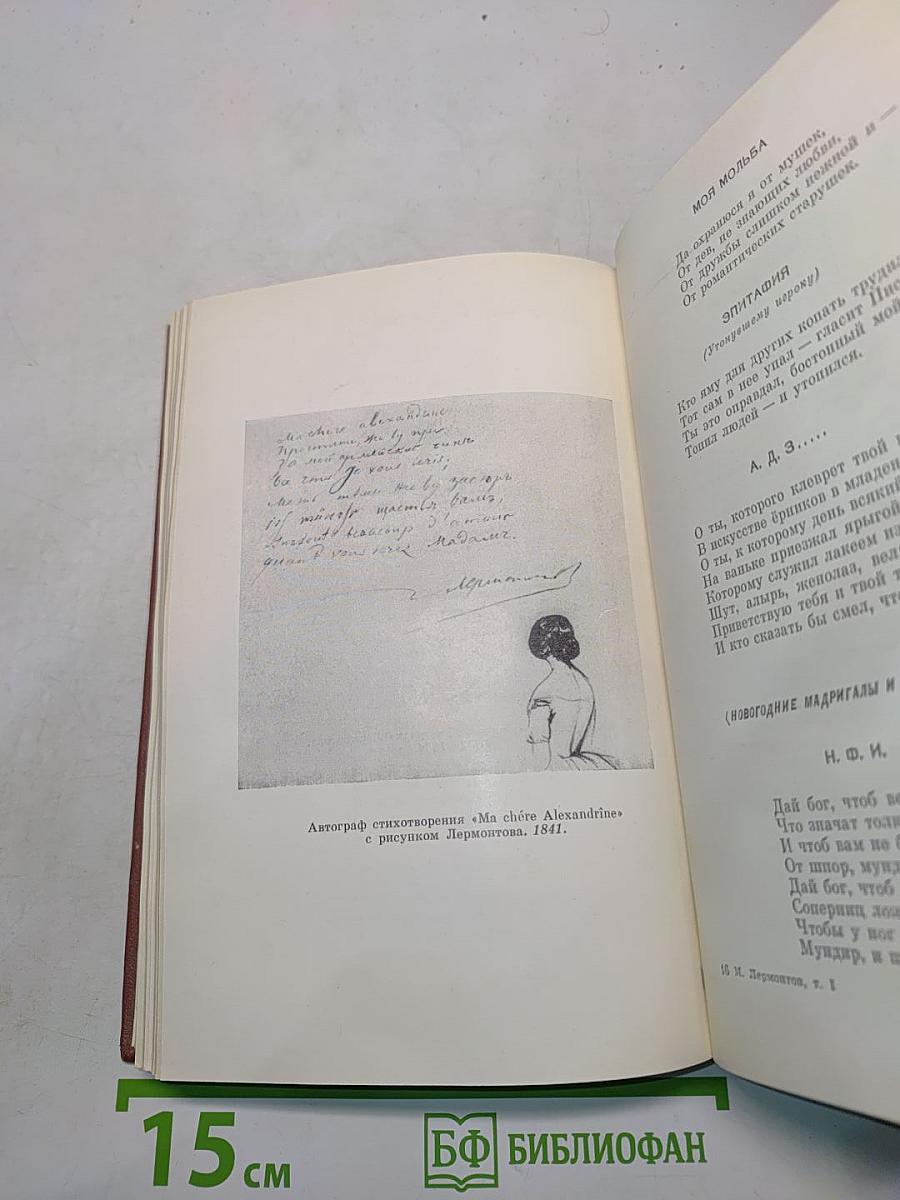 Ma chère Alexandrine,
Простите, же ву при
За мой армейский чинъ
Все что je vous écris;
Меж тѣмъ же ву засюръ
Ich wünsche счастья вамъ,
Surtout beaucoup d'amour
quand vous serez Мадамъ.
Лермонтов
Автограф стихотворения «Ma chére Alexandrîne»
с рисунком Лермонтова. 1841.
МОЯ МОЛЬБА
Да охранюся я от мушек,
От дев, не знающих любви,
От дружбы слишком нежной и —
От романтических старушек.
ЭПИТАФИЯ
(Утонувшему игроку)
Кто яму для других копать трудил
Тот сам в нее упал — гласит Пис
Ты это оправдал, бостонный мой
Топил людей — и утопился.
А. Д. З.....
О ты, которого клеврет твой
В искусстве ёрников в младен
О ты, к которому день всякий
На ваньке приезжал ярыгой
Которому служил лакеем на
Шут, алырь, жополаз, вел
Приветствую тебя и твой т
И кто сказать бы смел, чт
(НОВОГОДНИЕ МАДРИГАЛЫ И
Н. Ф. И.
Дай бог, чтоб ве
Что значат толк
И чтоб вам не б
От шпор, мунд
Дай бог, чтоб
Соперниц лож
Чтобы у ног
Мундир, и ш
16 М. Лермонтов, т. I
15 см
БФ БИБЛИОФАН